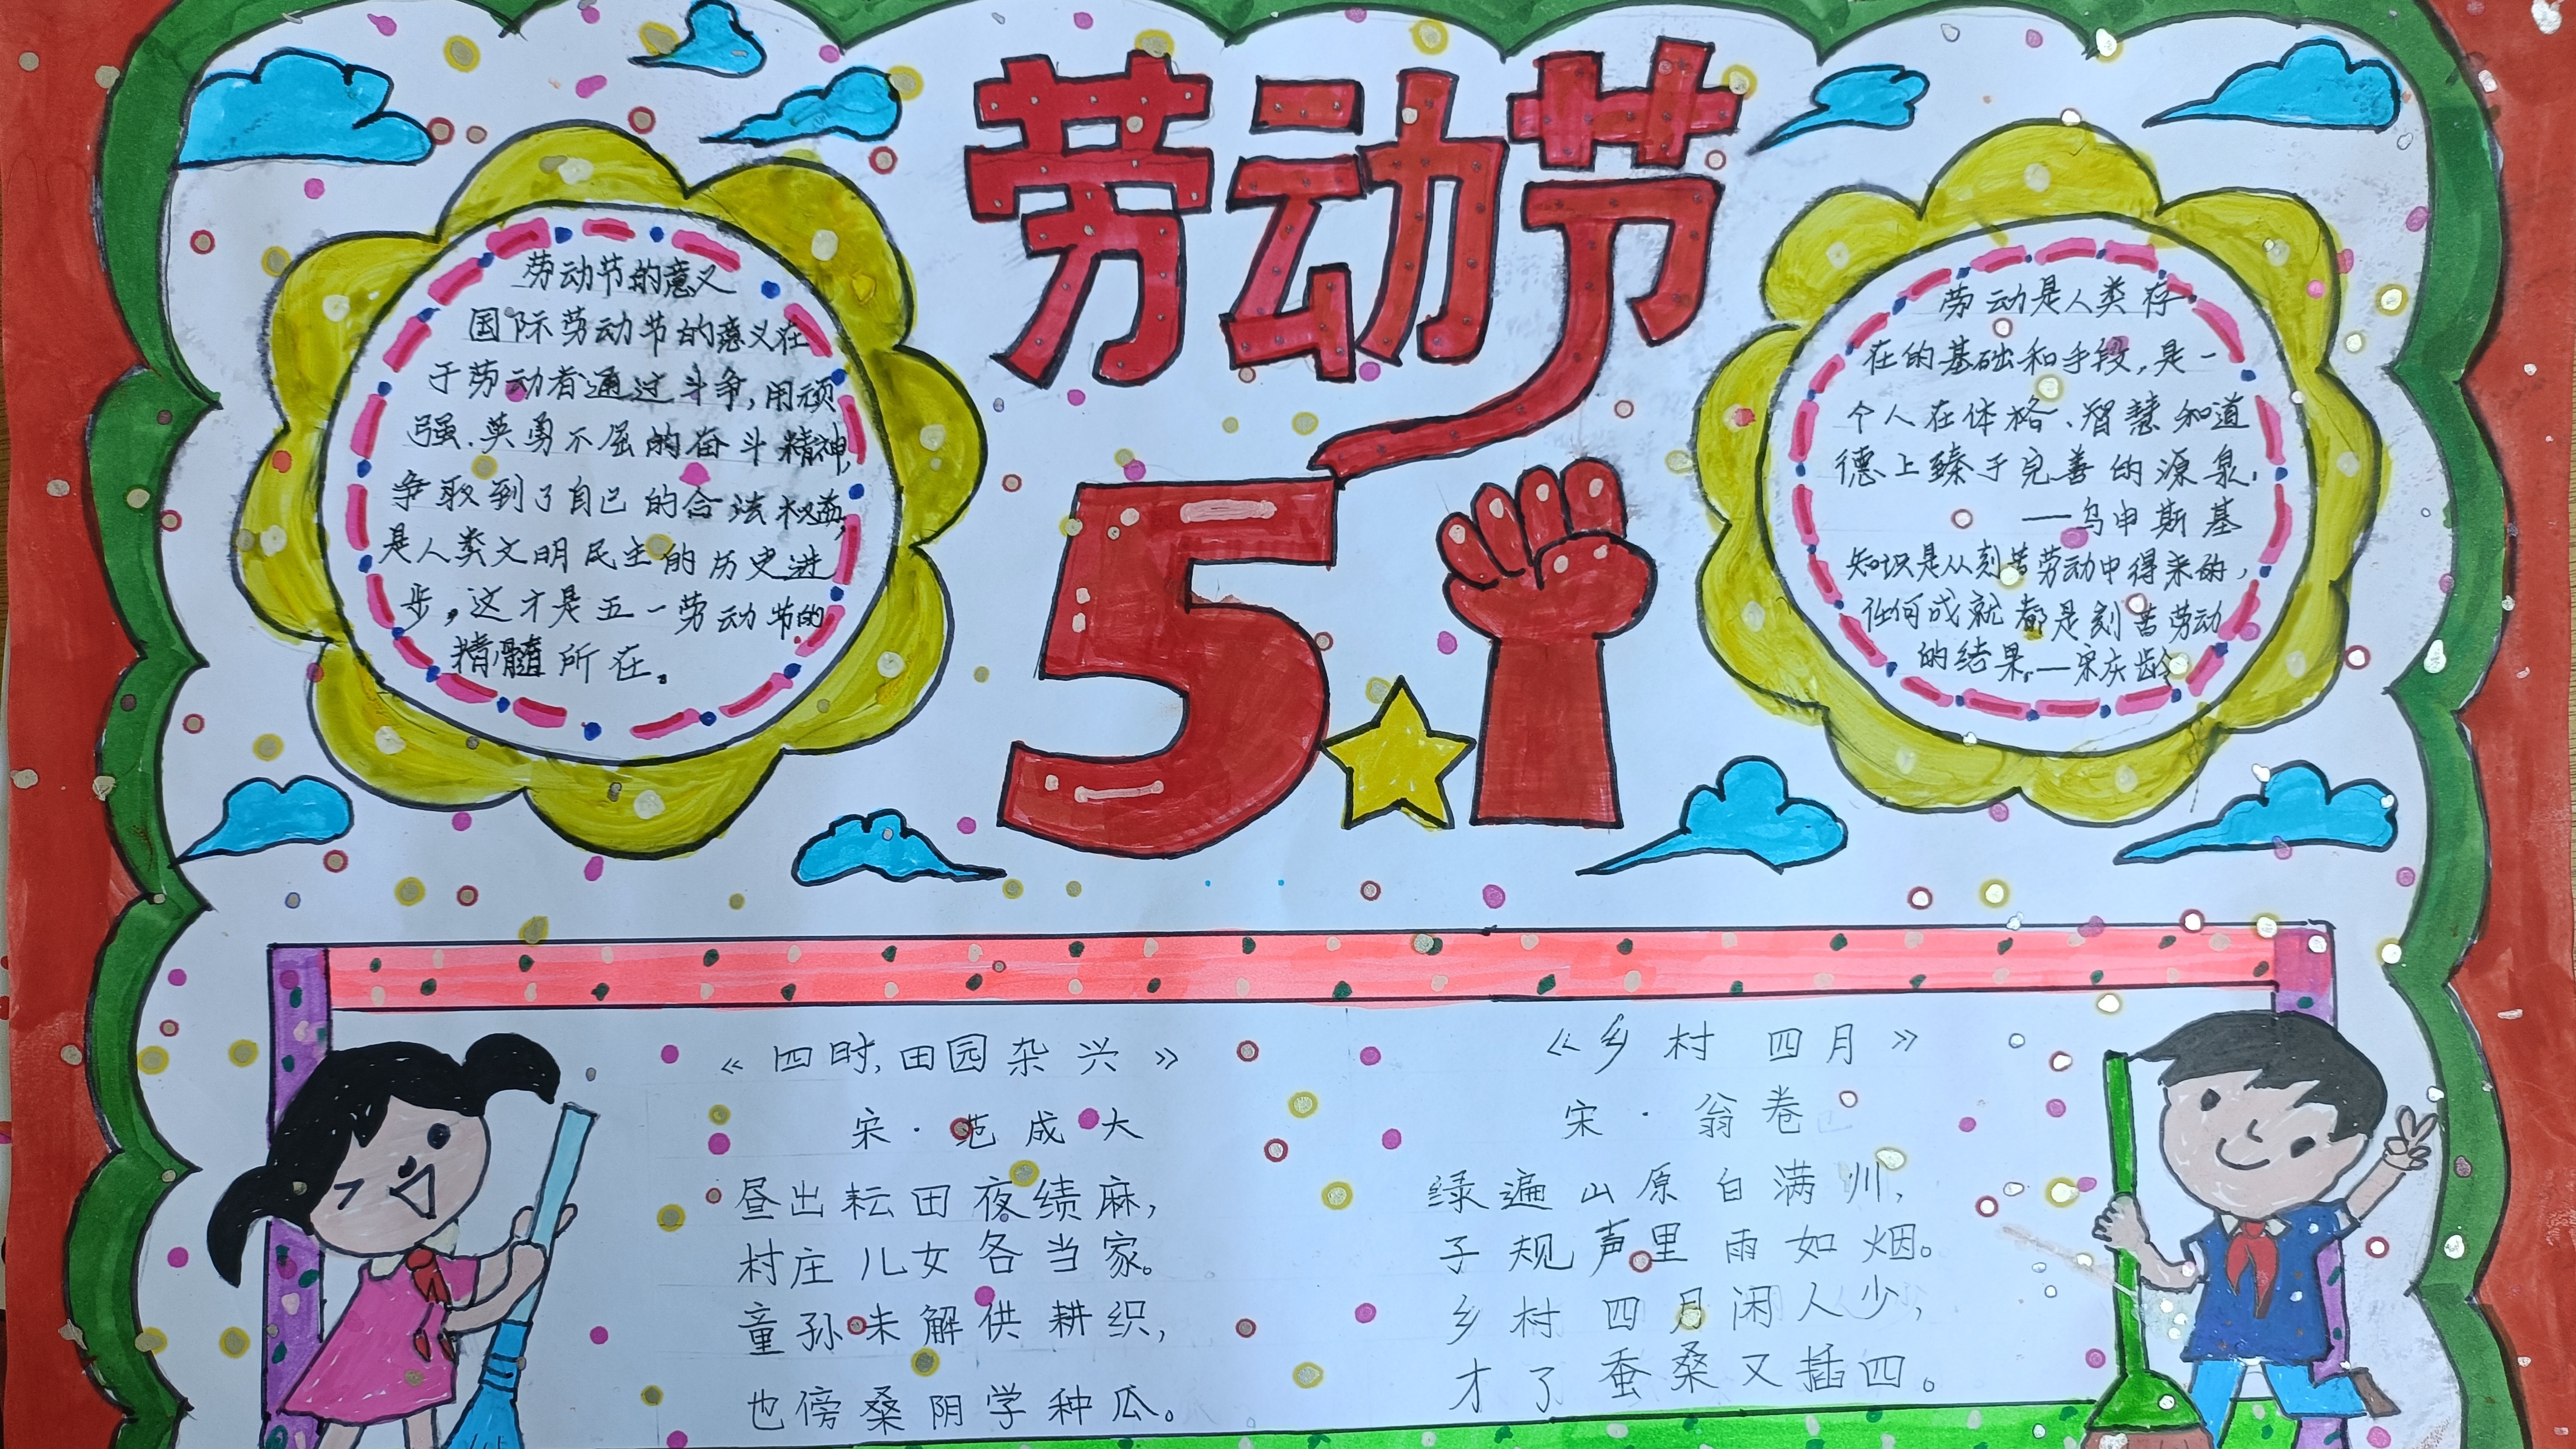 劳动节
5.1
劳动节的意义
国际劳动节的意义在
于劳动者通过斗争,用顽
强、英勇不屈的奋斗精神,
争取到了自己的合法权益,
是人类文明民主的历史进
步,这才是五一劳动节的
精髓所在。
劳动是人类存
在的基础和手段,是一
个人在体格、智慧和道
德上臻于完善的源泉.
——乌申斯基
知识是从刻苦劳动中得来的,
任何成就都是刻苦劳动
的结果。—宋庆龄
《四时,田园杂兴》
宋·范成大
昼出耘田夜绩麻,
村庄儿女各当家。
童孙未解供耕织,
也傍桑阴学种瓜。
《乡村四月》
宋·翁卷
绿遍山原白满川,
子规声里雨如烟。
乡村四月闲人少,
才了蚕桑又插四。